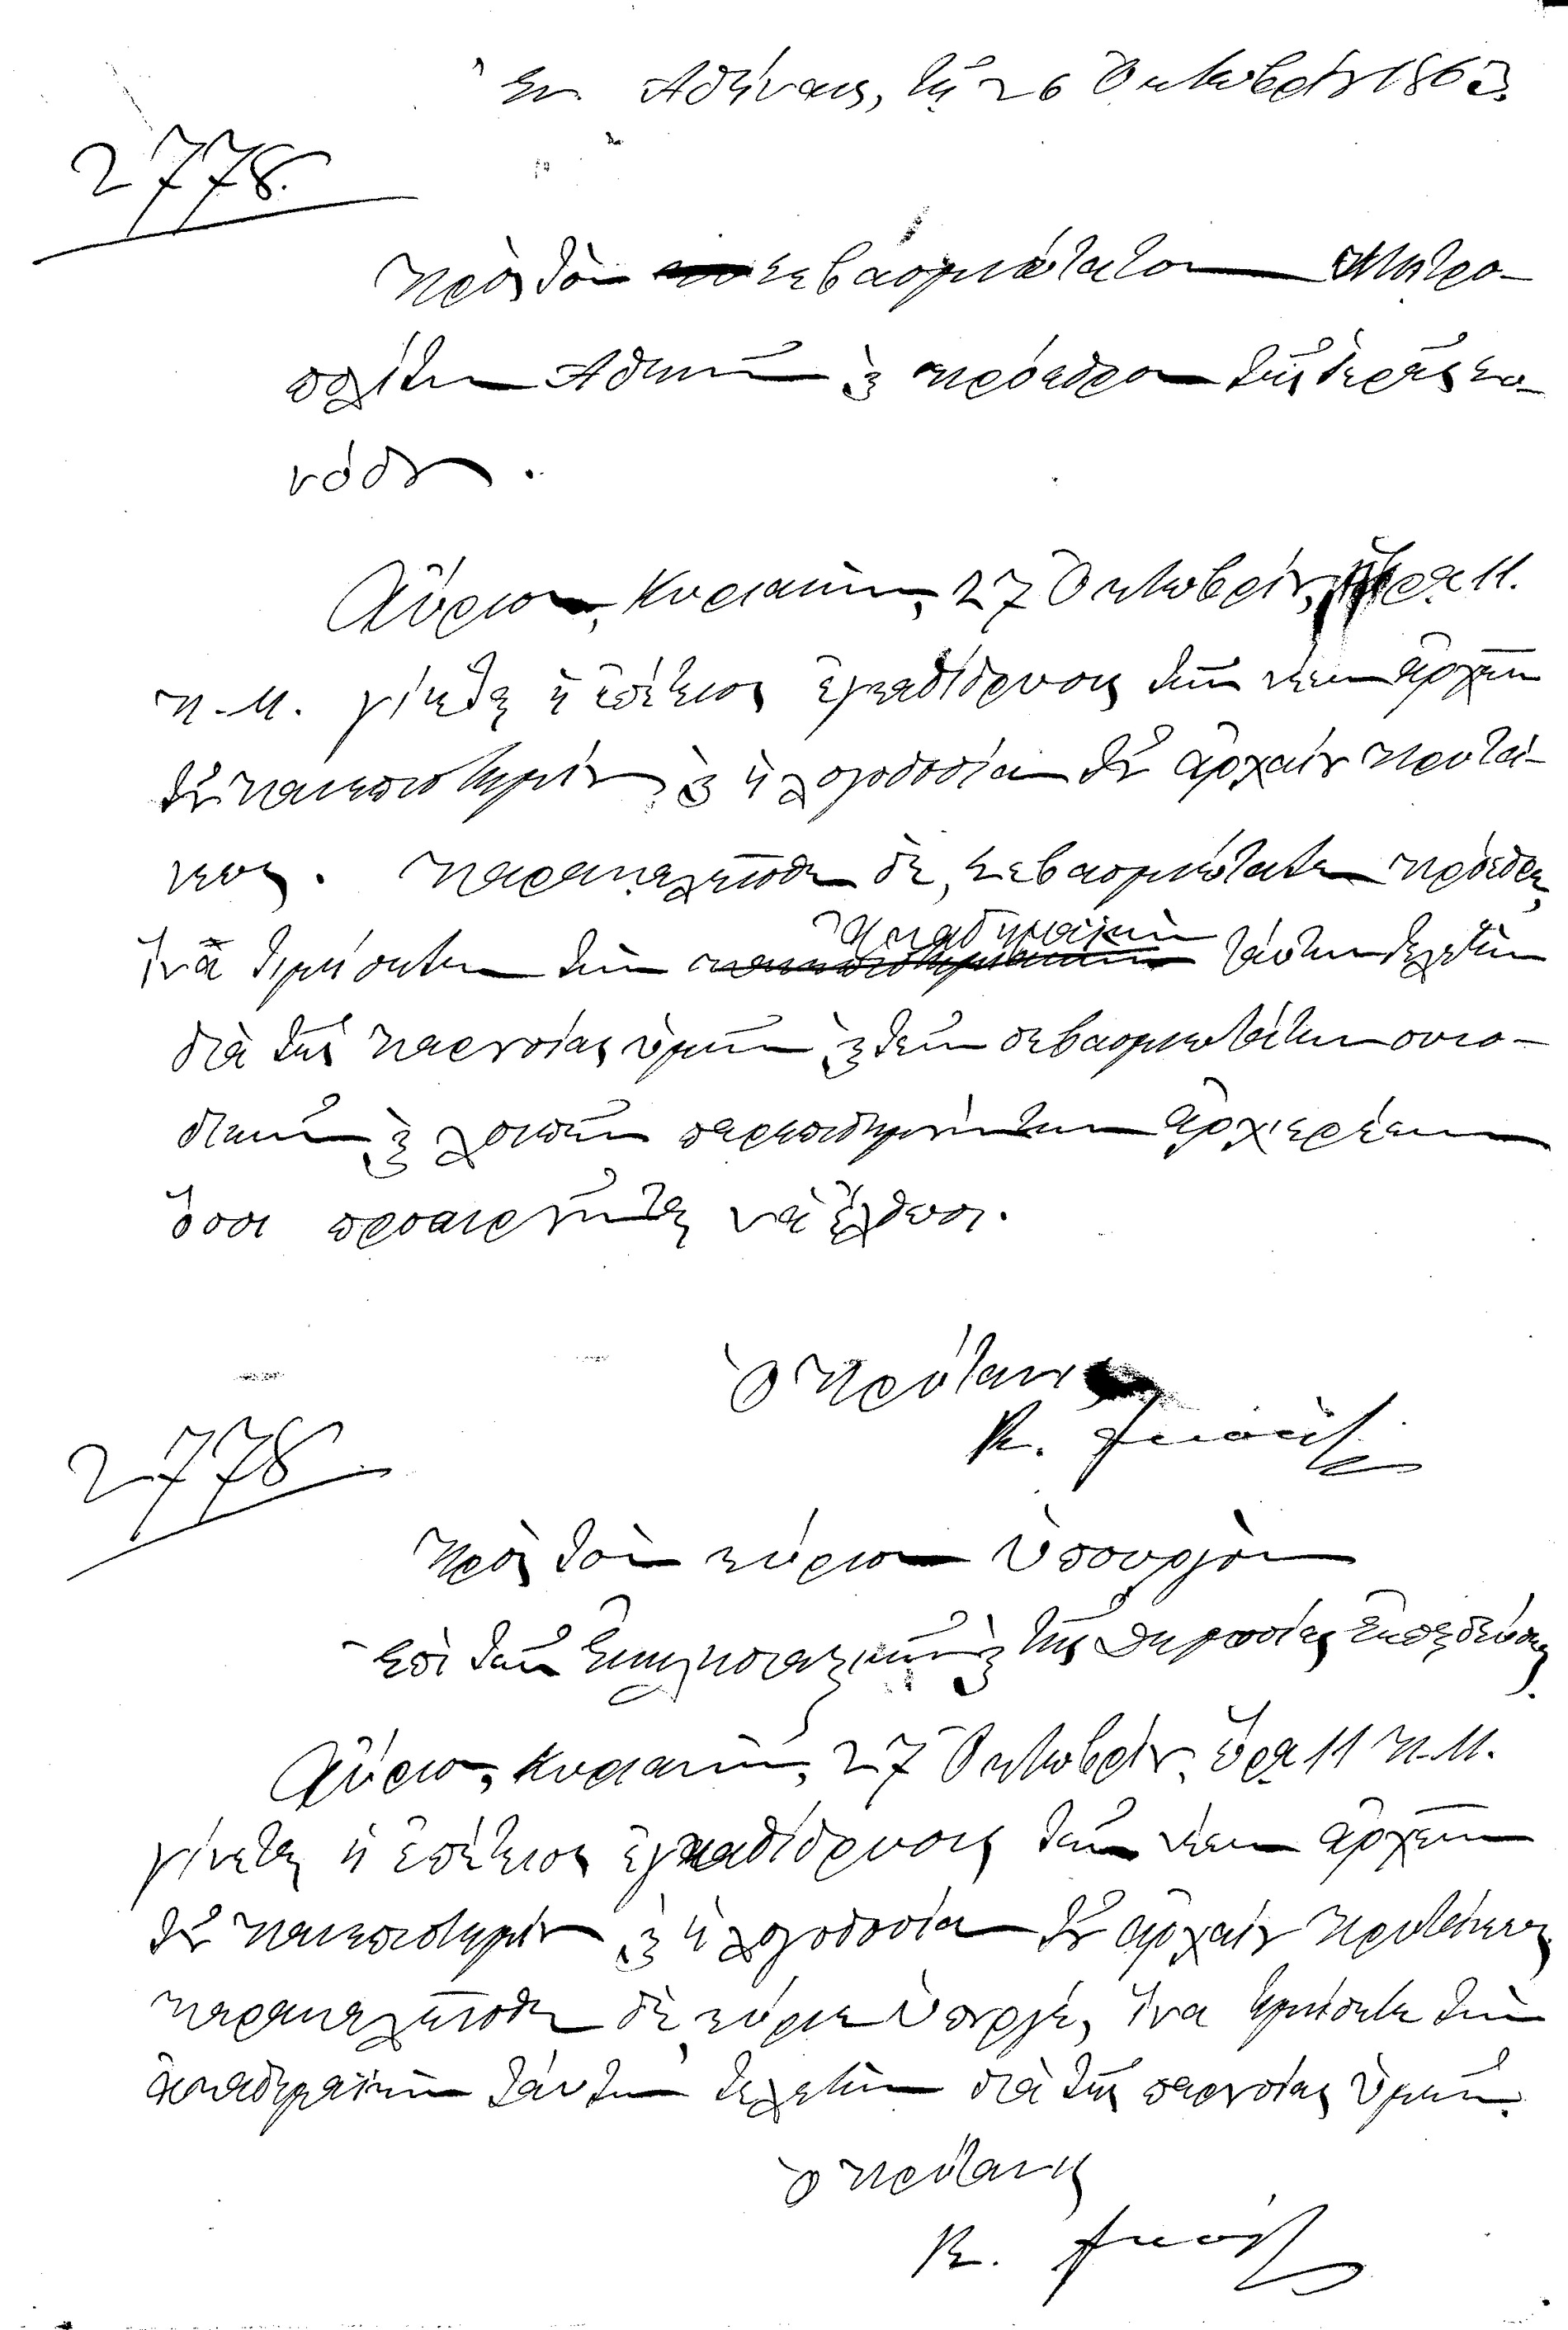 Ἐν Ἀθήναις, τῇ 26 Ὀκτωβρίου 1863.
2778.
Πρὸς τὸν Σεβασμιώτατον Μητρο-
πολίτην Ἀθηνῶν καὶ Πρόεδρον τῆς Ἱερᾶς Συ-
νόδου.
Αὔριον, Κυριακήν, 27 Ὀκτωβρίου, ὥρᾳ 11.
π.μ. γίνεται ἡ ἐπέτειος ἐγκαθίδρυσις τῶν νέων ἀρχῶν
τοῦ Πανεπιστημίου καὶ ἡ λογοδοσία τοῦ ἀρχαίου Πρυτά-
νεως. Παρακαλεῖσθε δέ, Σεβασμιώτατε Πρόεδρε,
ἵνα τιμήσητε τὴν Ἀκαδημαϊκὴν ταύτην τελετὴν
διὰ τῆς παρουσίας ὑμῶν καὶ τῶν σεβασμιωτάτων συνο-
δικῶν καὶ λοιπῶν παρεπιδημούντων ἀρχιερέων
ὅσοι προαιροῦνται νὰ ἔλθωσι.
Ὁ Πρύτανις
2778
Πρὸς τὸν κύριον Ὑπουργὸν
ἐπὶ τῶν Ἐκκλησιαστικῶν καὶ τῆς Δημοσίας Ἐκπαιδεύσεως.
Αὔριον, Κυριακήν, 27 Ὀκτωβρίου, ὥρᾳ 11 π.μ.
γίνεται ἡ ἐπέτειος ἐγκαθίδρυσις τῶν νέων ἀρχῶν
τοῦ Πανεπιστημίου καὶ ἡ λογοδοσία τοῦ ἀρχαίου Πρυτάνεως
Παρακαλεῖσθε δέ, κύριε Ὑπουργέ, ἵνα τιμήσητε τὴν
ἀκαδημαϊκὴν ταύτην τελετὴν διὰ τῆς παρουσίας ὑμῶν.
Ὁ Πρύτανις